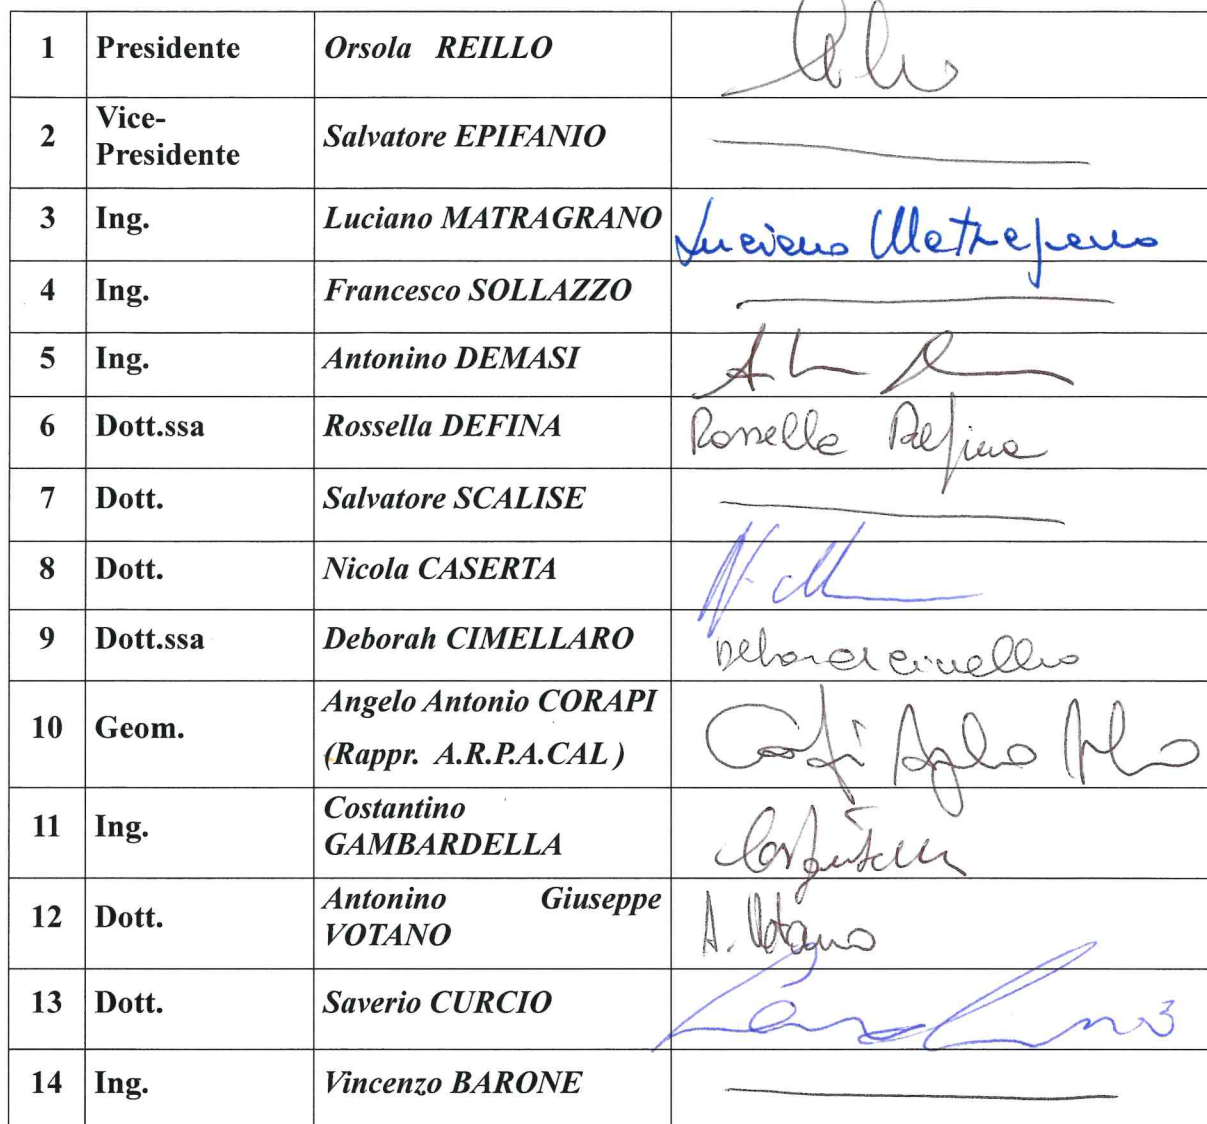 1 Presidente Orsola REILLO
2 Vice-
Presidente Salvatore EPIFANIO
3 Ing. Luciano MATRAGRANO Luciano Matragrano
4 Ing. Francesco SOLLAZZO
5 Ing. Antonino DEMASI
6 Dott.ssa Rossella DEFINA Rossella Defina
7 Dott. Salvatore SCALISE
8 Dott. Nicola CASERTA
9 Dott.ssa Deborah CIMELLARO
10 Geom. Angelo Antonio CORAPI
(Rappr. A.R.P.A.CAL )
11 Ing. Costantino
GAMBARDELLA
12 Dott. Antonino Giuseppe
VOTANO A. Votano
13 Dott. Saverio CURCIO
14 Ing. Vincenzo BARONE